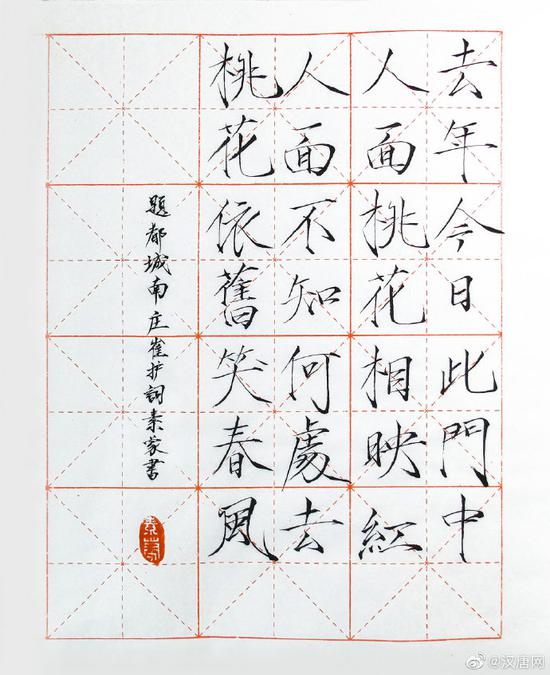 去年今日此門中
人面桃花相映紅
人面不知何處去
桃花依舊笑春風
題都城南庄崔护詞素蒙書
@汉唐网